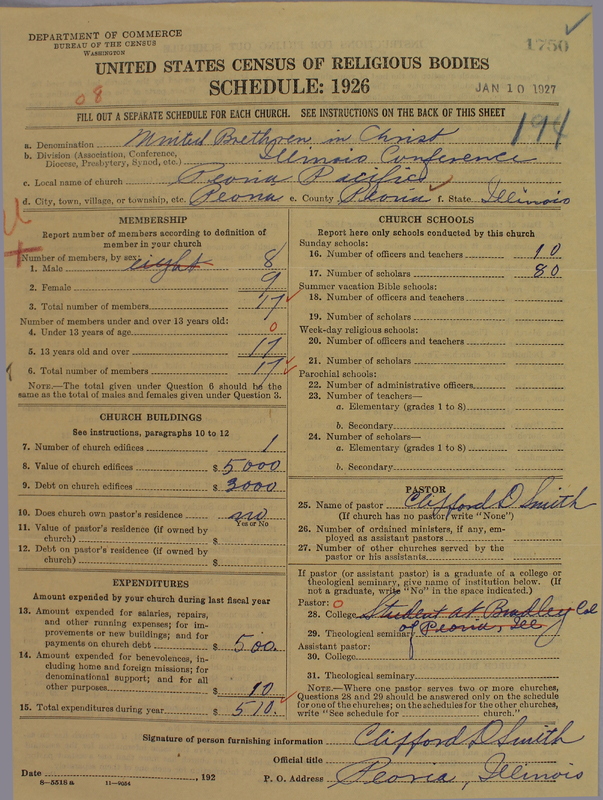 DEPARTMENT OF COMMERCE
BUREAU OF THE CENSUS
WASHINGTON
1750
UNITED STATES CENSUS OF RELIGIOUS BODIES
SCHEDULE: 1926
JAN 10 1927
08
FILL OUT A SEPARATE SCHEDULE FOR EACH CHURCH. SEE INSTRUCTIONS ON THE BACK OF THIS SHEET
194
a. Denomination United Brethren in Christ
b. Division (Association, Conference, Diocese, Presbytery, Synod, etc.) Illinois Conference
c. Local name of church Peoria Pacific
d. City, town, village, or township, etc. Peoria e. County Peoria f. State Illinois
MEMBERSHIP
Report number of members according to definition of
member in your church
Number of members, by sex:
1. Male eight 8
2. Female 9
3. Total number of members 17
Number of members under and over 13 years old:
4. Under 13 years of age 0
5. 13 years old and over 17
6. Total number of members 17
NOTE.—The total given under Question 6 should be the
same as the total of males and females given under Question 3.
CHURCH BUILDINGS
See instructions, paragraphs 10 to 12
7. Number of church edifices 1
8. Value of church edifices $ 5000
9. Debt on church edifices $ 3000
10. Does church own pastor's residence no
Yes or No
11. Value of pastor's residence (if owned by
church) $
12. Debt on pastor's residence (if owned by
church) $
EXPENDITURES
Amount expended by your church during last fiscal year
13. Amount expended for salaries, repairs,
and other running expenses; for im-
provements or new buildings; and for
payments on church debt $ 500.
14. Amount expended for benevolences, in-
cluding home and foreign missions; for
denominational support; and for all
other purposes $ 10
15. Total expenditures during year $ 510.
CHURCH SCHOOLS
Report here only schools conducted by this church
Sunday schools:
16. Number of officers and teachers 10
17. Number of scholars 80
Summer vacation Bible schools:
18. Number of officers and teachers
19. Number of scholars
Week-day religious schools:
20. Number of officers and teachers
21. Number of scholars
Parochial schools:
22. Number of administrative officers
23. Number of teachers—
a. Elementary (grades 1 to 8)
b. Secondary
24. Number of scholars—
a. Elementary (grades 1 to 8)
b. Secondary
PASTOR
25. Name of pastor Clifford D Smith
(If church has no pastor, write "None")
26. Number of ordained ministers, if any, em-
ployed as assistant pastors
27. Number of other churches served by the
pastor or his assistants
If pastor (or assistant pastor) is a graduate of a college or
theological seminary, give name of institution below. (If
not a graduate, write "No" in the space indicated.)
Pastor: 0
28. College Student at Bradley Col
29. Theological seminary of Peoria, Ill
Assistant pastor:
30. College
31. Theological seminary
NOTE.—Where one pastor serves two or more churches,
Questions 28 and 29 should be answered only on the schedule
for one of the churches; on the schedules for the other churches,
write "See schedule for church."
Signature of person furnishing information Clifford D Smith
Official title
Date , 192 P. O. Address Peoria, Illinois
8—5518 a 11—9034